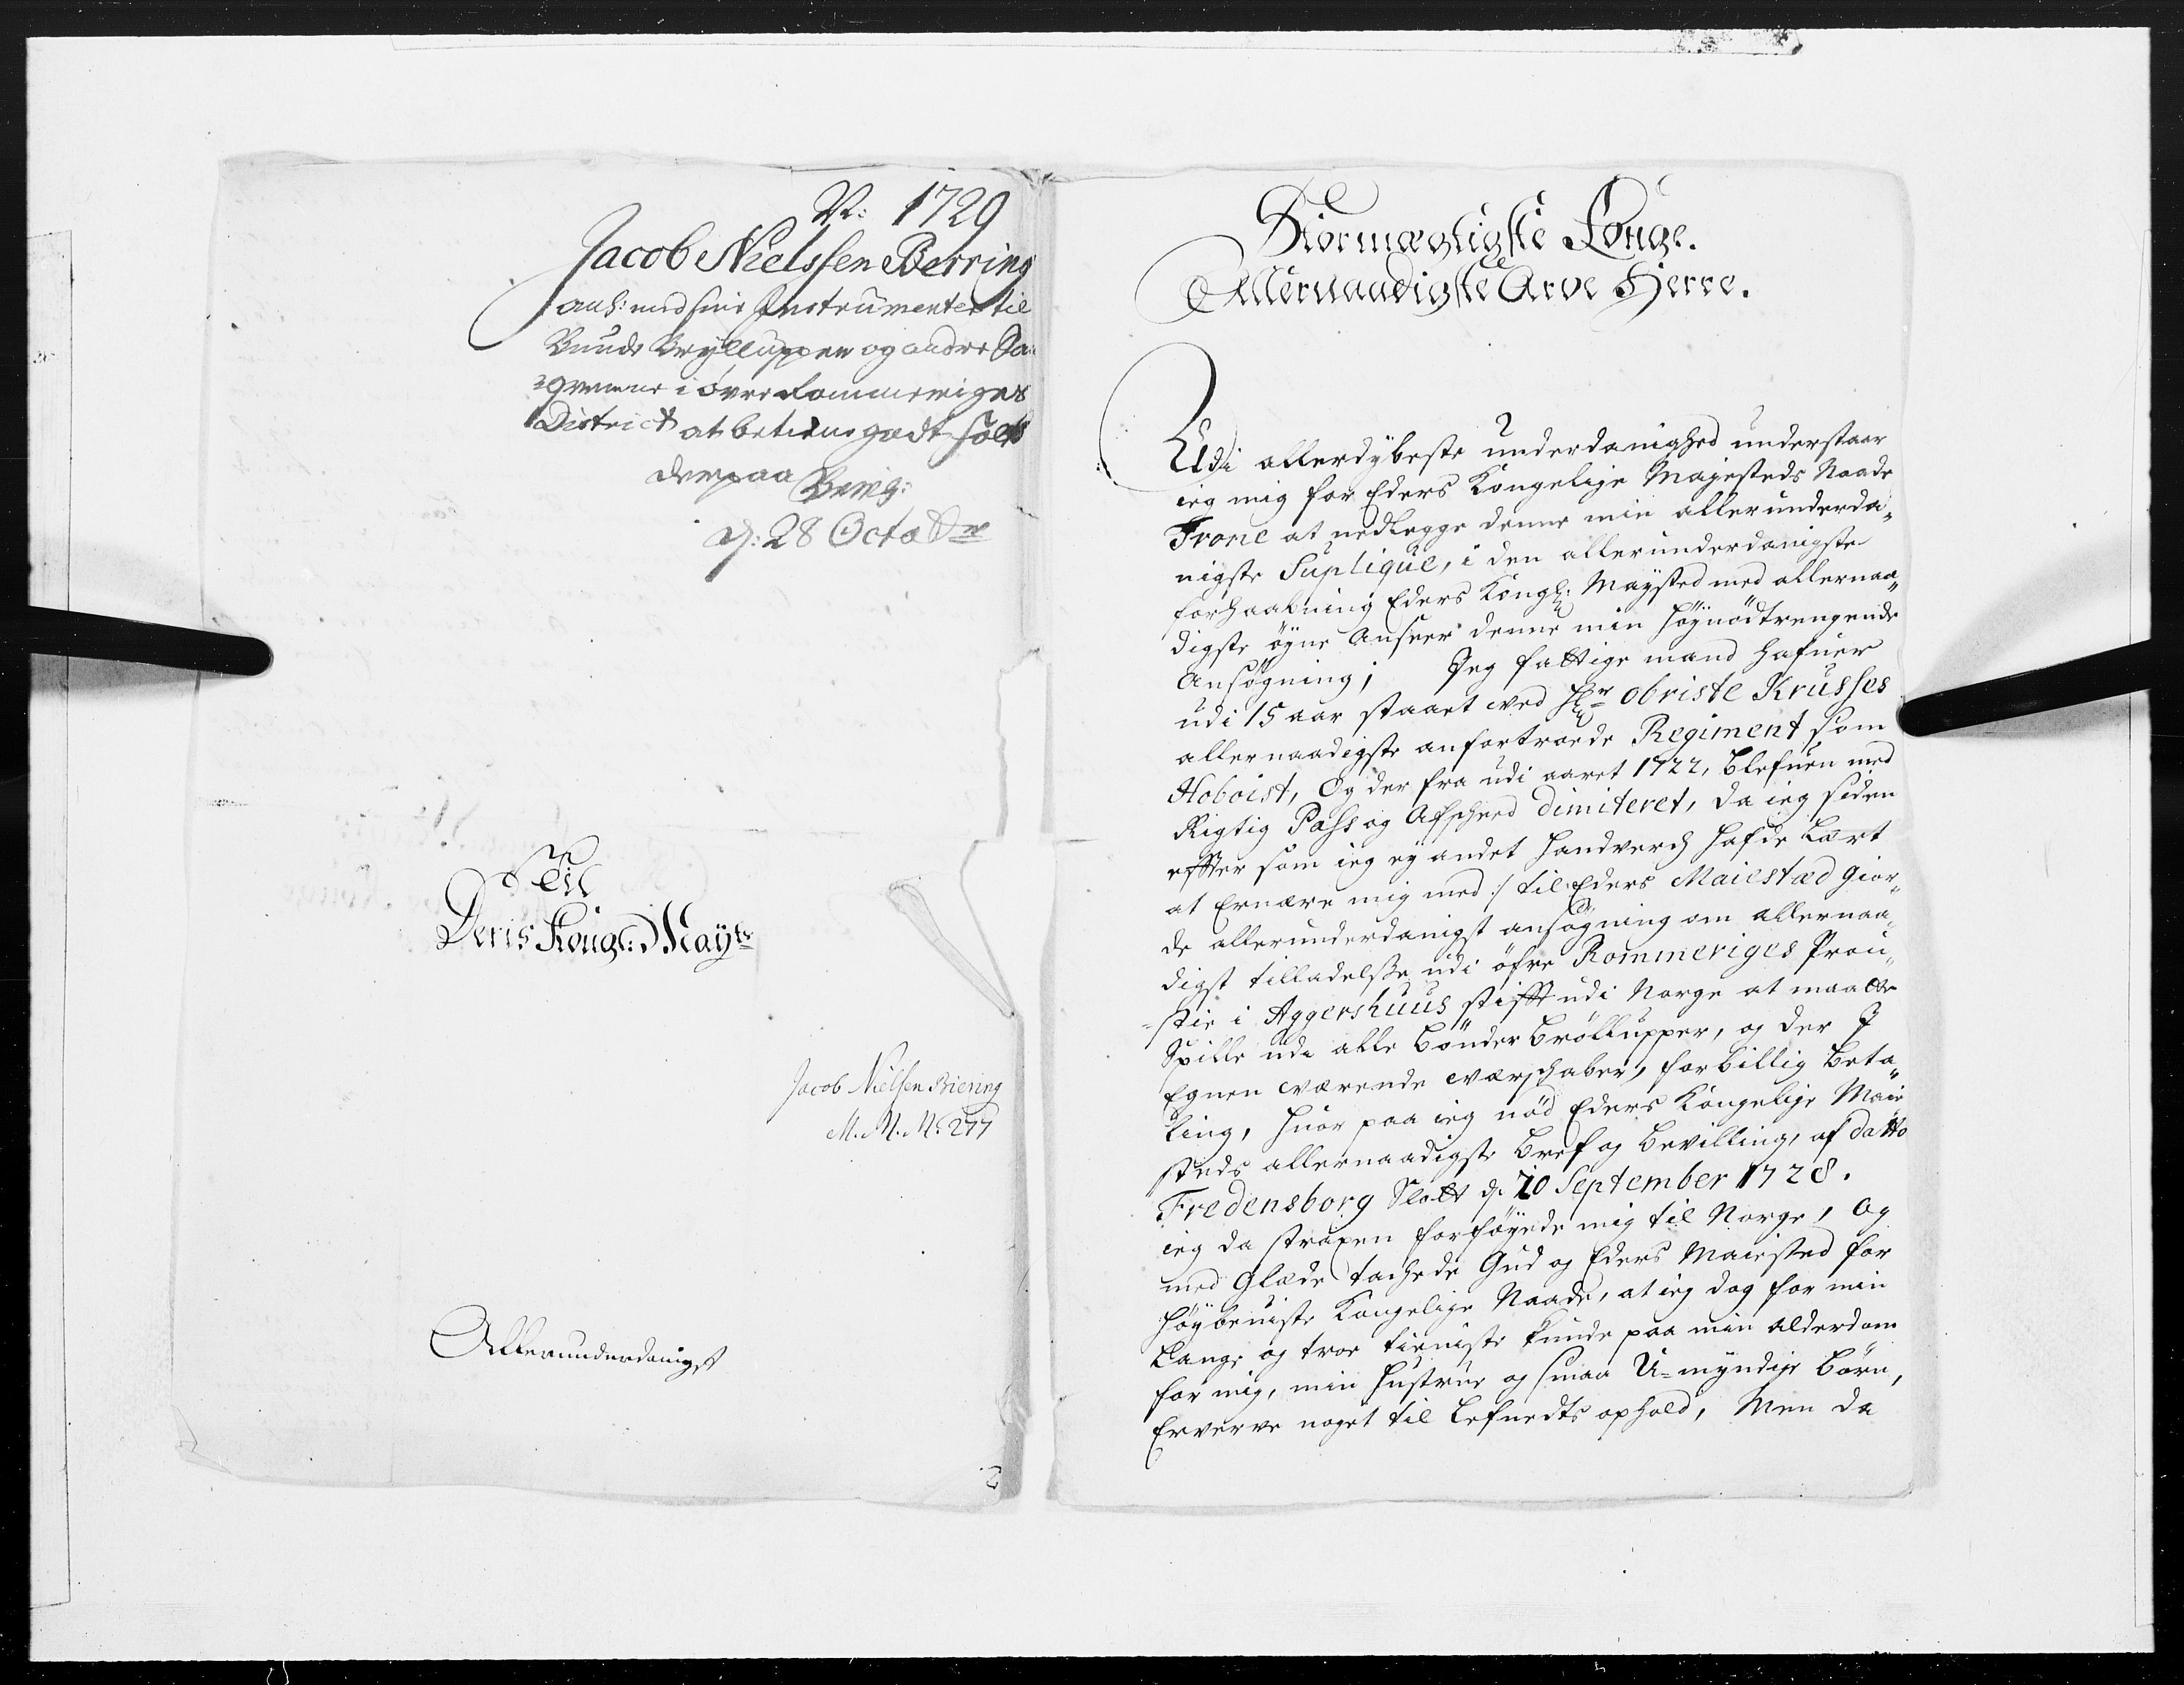 N: 1729
Jacob Nielssen Berring
anh: med sine Instrumenter til
Bunde Brylluppen og andre Sa¬
grenene i øvre Rommeriges
District at betiene godt folk
derpaa Bevilg:
d: 28 Octobr
Til
Deris Kongl: Mayts
Jacob Nielsen Biering
M. M. N: 277
Allerunderdanigst
2
Stormægtigste Konge.
Allernaadigste Arve Herre.
Udi allerdybeste underdanighed understaar
ieg mig for Eders Kongelige Majesteds Naade
Trone at nedlegge denne min allerunderda„
nigste Suplique, i den allerunderdanigste
forhaabning Eders Kongl: Maysted med allernaa„
digste øyne Anseer denne min høynødtrengende
Ansøgning; Jeg fattige mand hafuer
udi 15 aar staaet ved Hr obriste Krusses
allernaadigste anfortroede Regiment som
Hoboist, Og der fra udi aaret 1722, blefuen med
Rigtig Pass og Afscheed dimiteret, da ieg siden
effter som ieg ey andet handverch hafde Lært
at Ernære mig med :/ til Eders Maiestæd gior„
de allerunderdanigst ansøgning om allernaa„
digst tilladelsse udi øfre Rommeriges Prou„
stie i Aggershuus stifft udi Norge at maatte
Spille udi alle Bønder Brøllupper, og der I
Egnen værende værschaber, for billig beta„
ling, huor paa ieg nød Eders Kongelige Maie
steds allernaadigste Bref og Bevilling, af datto
Fredensborg Slott d: 20 September 1728.
ieg da straxen forføyede mig til Norge, Og
med Glæde tachede Gud og Eders Maiested for
høybeviste Kongelige Naade, at ieg dog for min
Lange og troe tieniste kunde paa min alderdom
for mig, min hustrue og smaa U=myndige børn,
Erverve noget til Lefnedts ophold, Men da